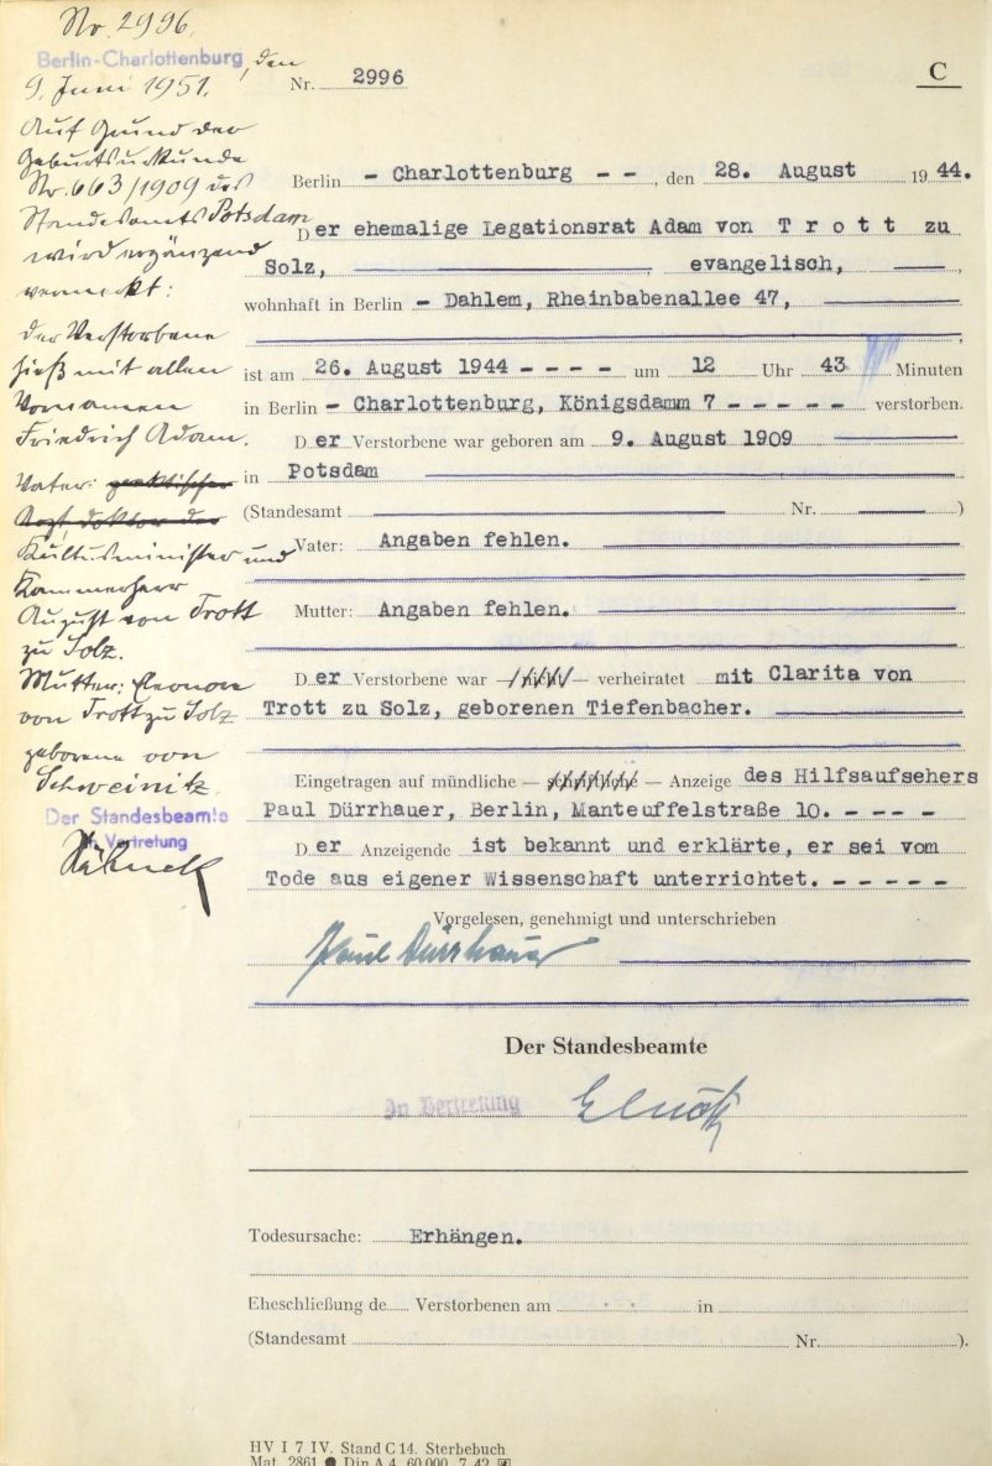 Nr. 2996.
Berlin-Charlottenburg, den
9. Juni 1951.
Auf Grund der
Geburtsurkunde
Nr. 663/1909 des
Standesamts Potsdam
wird ergänzend
vermerkt:
der Verstorbene
hieß mit allen
Vornamen
Friedrich Adam.
Vater: praktischer
Arzt, doktor der
Kultusminister und
Kammerherr
August von Trott
zu Solz.
Mutter: Eleonore
von Trott zu Solz
geborene von
Schweinitz
Der Standesbeamte
In Vertretung
Nr. 2996
C
Berlin - Charlottenburg - - , den 28. August 19 44.
Der ehemalige Legationsrat Adam von Trott zu
Solz, evangelisch,
wohnhaft in Berlin - Dahlem, Rheinbabenallee 47,
ist am 26. August 1944 - - - - um 12 Uhr 43 Minuten
in Berlin - Charlottenburg, Königsdamm 7 - - - - - verstorben.
Der Verstorbene war geboren am 9. August 1909
in Potsdam
(Standesamt Nr. )
Vater: Angaben fehlen.
Mutter: Angaben fehlen.
Der Verstorbene war — nicht — verheiratet mit Clarita von
Trott zu Solz, geborenen Tiefenbacher.
Eingetragen auf mündliche — schriftliche — Anzeige des Hilfsaufsehers
Paul Dürrhauer, Berlin, Manteuffelstraße 10. - - - -
Der Anzeigende ist bekannt und erklärte, er sei vom
Tode aus eigener Wissenschaft unterrichtet. - - - - -
Vorgelesen, genehmigt und unterschrieben
Paul Dürrhauer
Der Standesbeamte
In Vertretung
Todesursache: Erhängen.
Eheschließung de Verstorbenen am . . in
(Standesamt Nr. ).
HV I 7 IV. Stand C 14. Sterbebuch
Mat. 2861 ● Din A 4 60 000 7. 42